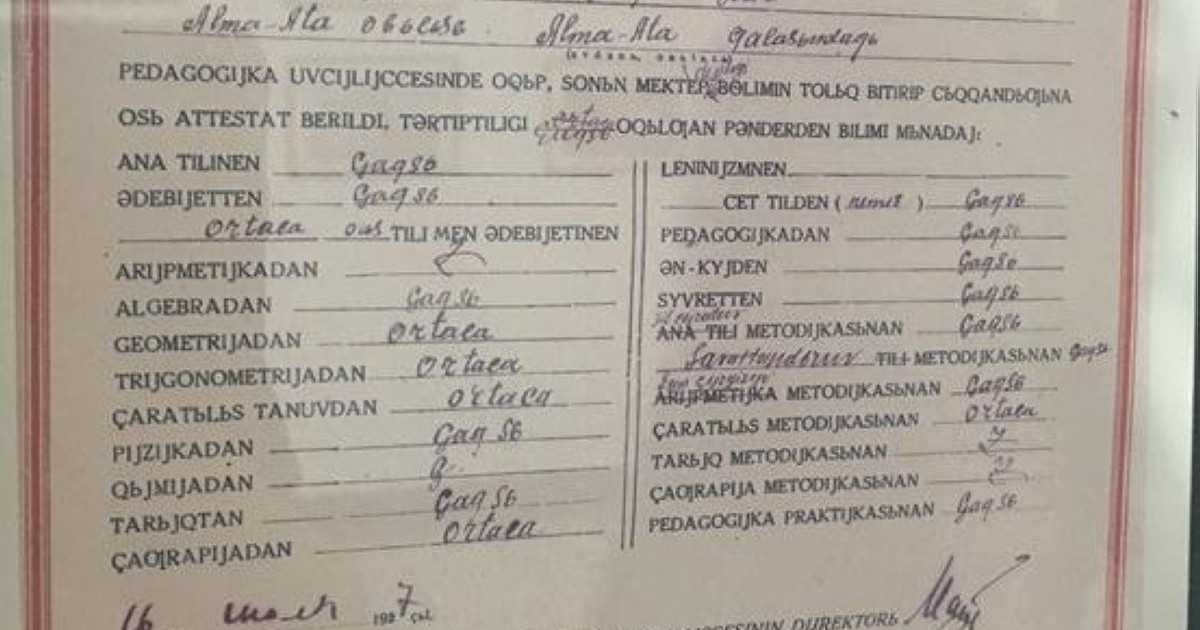 Alma-Ata oblьsь Alma-Ata qalasьndaƣь
PEDAGOGIJKA UVCIJLIJCCESINDE OQЬP, SONЬN MEKTEP BɵLIMIN TOLЬQ BITIRIP CЬQQANDЬƢЬNA
OSЬ ATTESTAT BERILDI, TƏRTIPTILIGI ortaca OQЬLƢAN PƏNDERDEN BILIMI MЬNADAJ:
ANA TILINEN Çaqsь
ƏDEBIJETTEN Çaqsь
ortaca orьs TILI MEN ƏDEBIJETINEN
ARIJPMETIJKADAN
ALGEBRADAN Çaqsь
GEOMETRIJADAN ortaca
TRIJGONOMETRIJADAN ortaca
ÇARATЬLЬS TANUVDAN ortaca
PIJZIJKADAN Çaqsь
QЬJMIJADAN
TARЬJQTAN Çaqsь
ÇAƢRAPIJADAN ortaca
LENINIJZMNEN
CET TILDEN ( nemis ) Çaqsь
PEDAGOGIJKADAN Çaqsь
ƏN-KYJDEN Çaqsь
SYVRETTEN Çaqsь
ANA TILI METODIJKASЬNAN Çaqsь
TILI METODIJKASЬNAN Çaqsь
ARIJPMETIJKA METODIJKASЬNAN Çaqsь
ÇARATЬLЬS METODIJKASЬNAN ortaca
TARЬJQ METODIJKASЬNAN
ÇAƢRAPIJA METODIJKASЬNAN
PEDAGOGIJKA PRAKTIJKASЬNAN Çaqsь
16 1937 çьl
DIJREKTORЬ